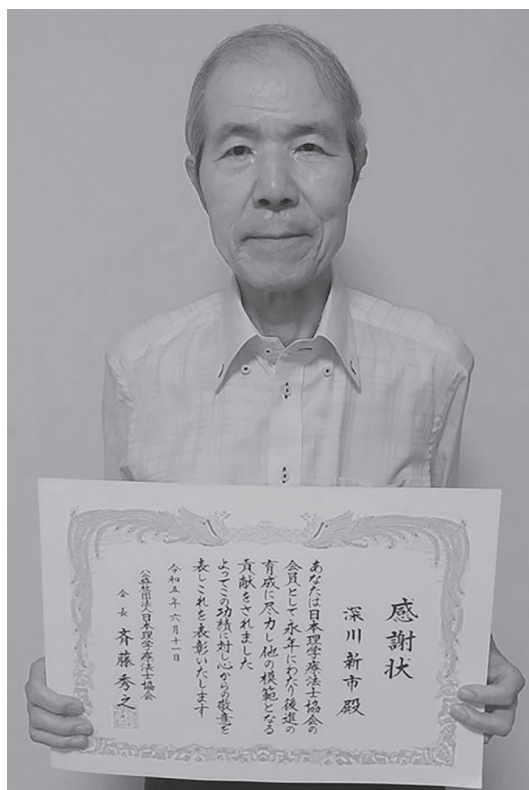 感謝状
深川新市殿
あなたは日本理学療法士協会の
会員として永年にわたり後進の
育成に尽力し他の模範となる
貢献をされました
よってこの功績に対し心からの敬意を
表しこれを表彰いたします
令和五年六月十一日
公益社団法人日本理学療法士協会
会長 斉藤秀之